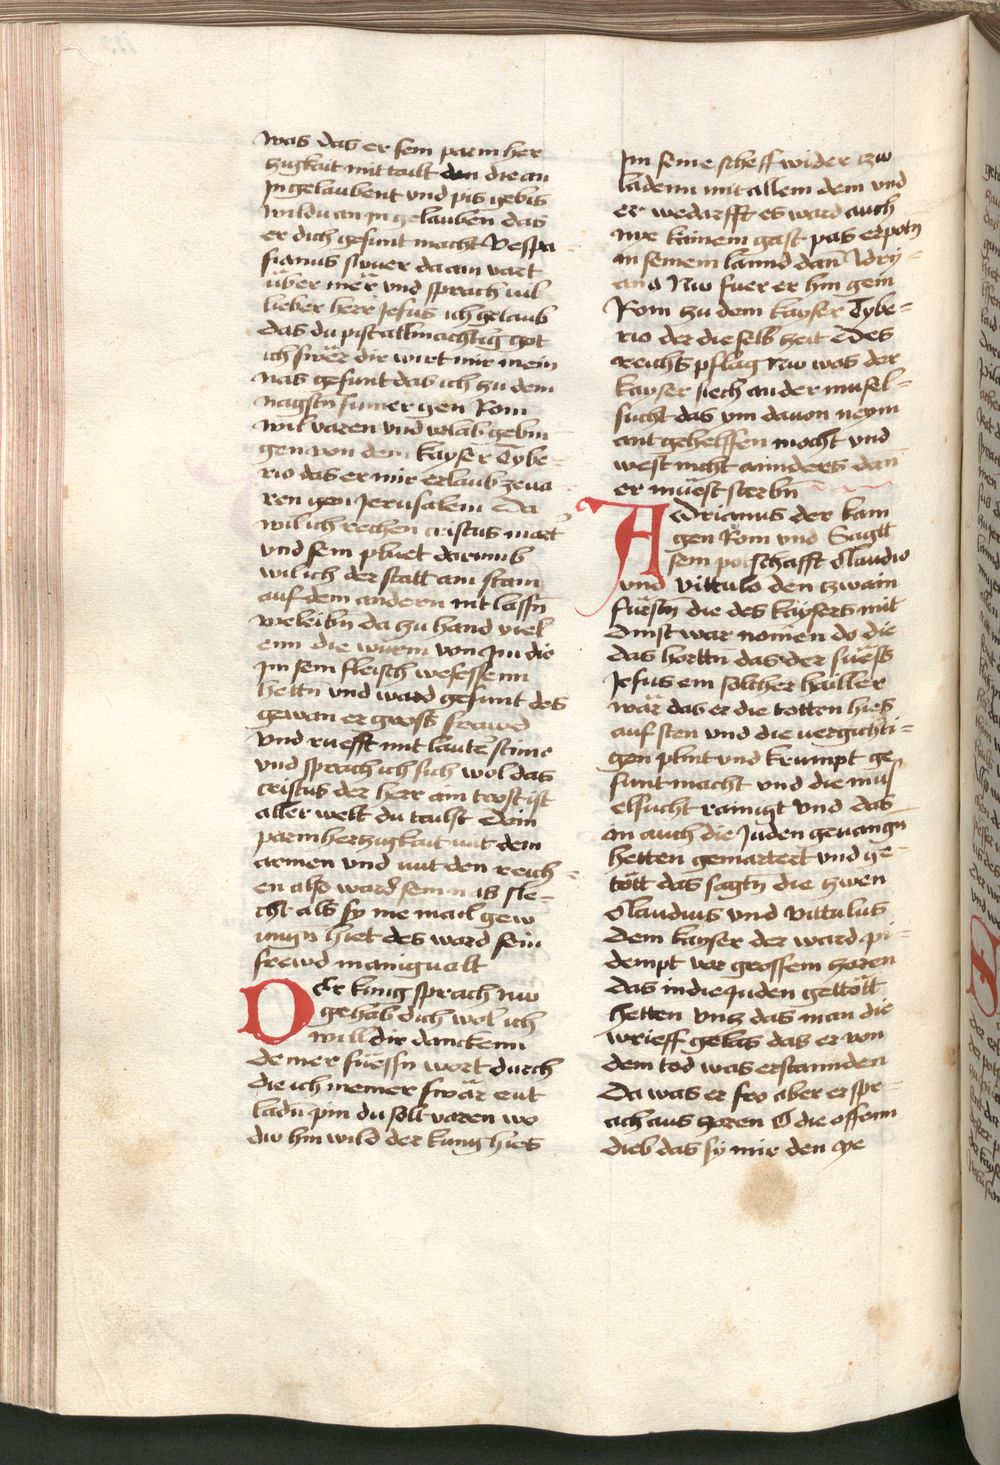 was das er sein parmher
zigkait mit tailt den die an
In gelaubent vnd pis gebis
wildu an in gelauben das
er dich gesunt macht Vespa
sianus swuer da am vart
über mër vnd sprach vil
lieber herr Jesus ich gelaub
das du pist allmachtig got
ich swër dir wirt mir mein
nas gesunt das ich zu dem
nagstn sumer gen Rom
wil varen vnd vrlab gebin
gen von dem kayser Tybe-
rio das er mir erlaub zeua
ren gen Jerusalem Da
wil ich rechen cristus mart
vnd sein pluet darumb
wil ich der statt ain stain
auf dem andern nit lassn
weleibn da zu hand viel
enn die würm von Im die
Im sein fleisch wesessenn
hettn vnd ward gesunt des
gewan er gross frewd
vnd rufft mit lauter stime
vnd sprach ich sich wol das
cristus der herr ain trost ist
aller welt du tailst dein
parmhertzigkait mit dem
armen vnd mit den reich-
en also ward sein nas sle-
cht als sy nie mail gew
ungn hiet des ward sein
frewd manigualt
Der kung sprach nw
gehab dich wol ich
will dir danckenn
deiner süessn wort durch
die ich meiner swär ent
ladn pin du sollt varen wo
du hin wild der kung hies
Im seine scheff wider tzw
ladenn mit allem dem vnd
er wedarfft es ward auch
nye kainem gast pas erpotn
in seinem lannd dan Adry-
ana Nw fuer er hin gein
Rom zu dem kayser Tybe-
rio der die selb zeit des
reichs pflag nw was der
kayser siech an der musel-
sucht das ym dauon neym
ant gehelffen mocht vnd
west nicht annders dan
er müest sterbn
Adrianus der kam
gen Rom vnd Sagtt
sein potschafft Claudio
vnd vittulo den zwain
fürstn die des kaysers mit
dinst war nomen do die
das hortn das der süess
Jesus ein solcher hailler
wär das er die totten hies
auf sten vnd die uergichti-
gen plint vnd krumpt ge
sunt macht vnd die mus
elsucht rainigt vnd das
in auch die Juden geuangn
hetten gemartert vnd ge-
tött das sagtn die zwen
Claudius vnd vittulus
dem kayser der ward pi-
dempt vor grossem zoren
das in die Juden gettött
hetten vntz das man die
wrieff gelas das er von
dem tod was erstannden
Da was er fro aber er spr-
ach aus zoren O die offenn
dieb das sy mir den ye